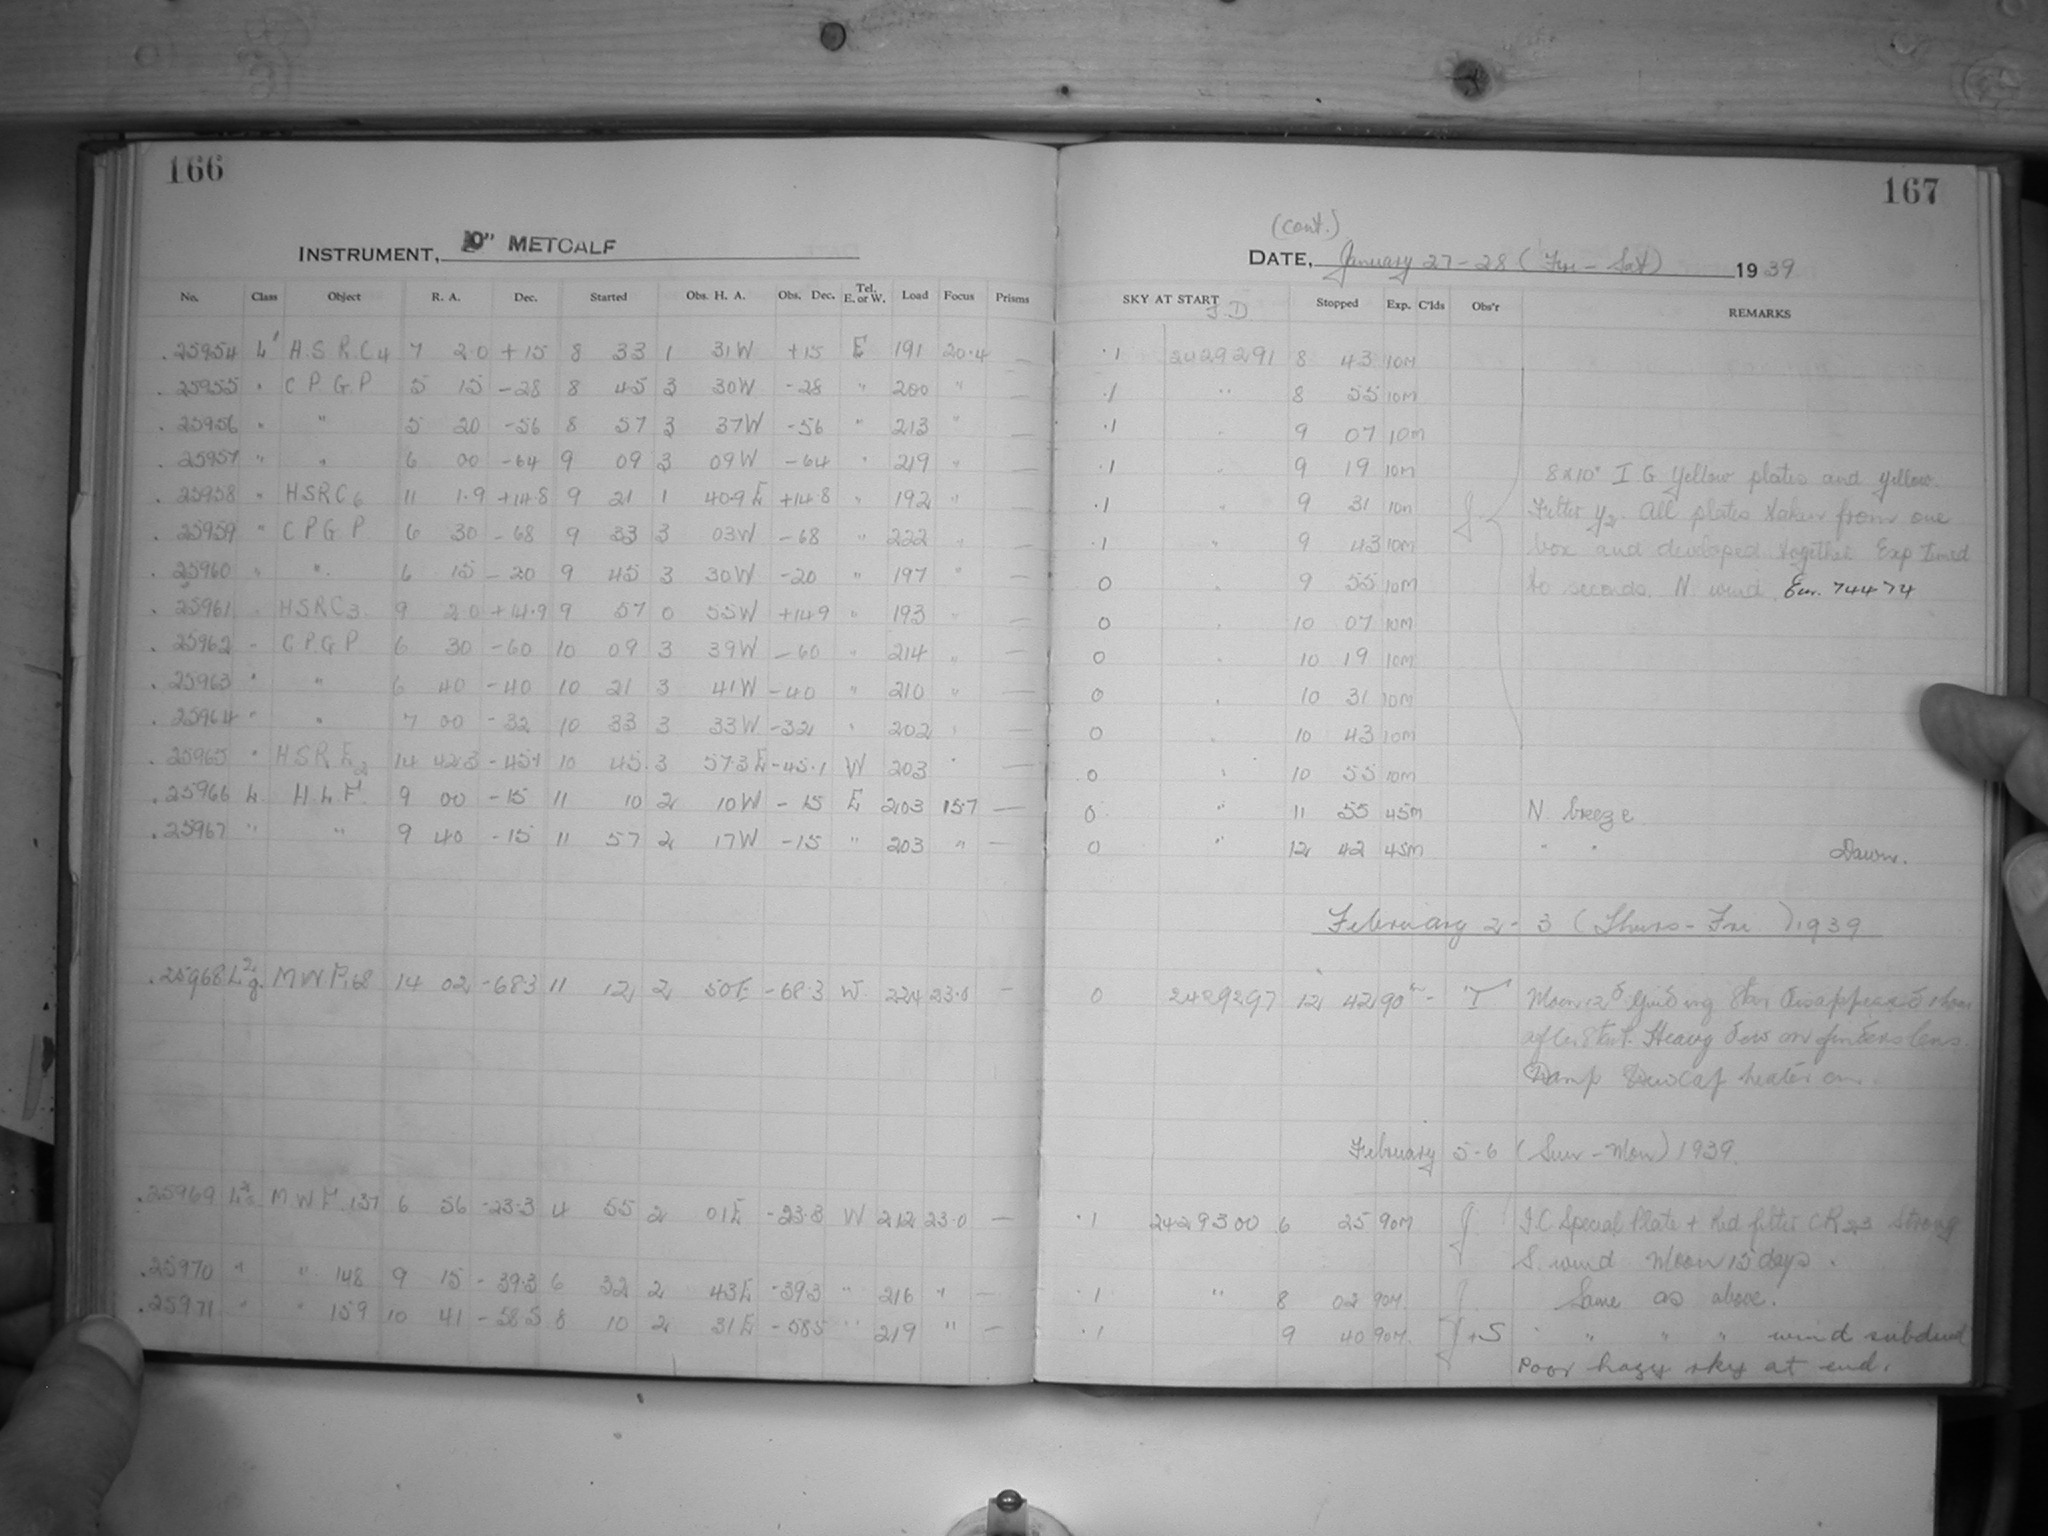 166
INSTRUMENT, 10" METCALF
No. Class Object R. A. Dec. Started Obs. H. A. Obs. Dec. Tel. E. or W. Load Focus Prisms
.25954 L' H.S.R.C4 7 20 +15 8 33 1 31W +15 E 191 20.4 —
.25955 " C P G P 5 15 -28 8 45 3 30W -28 " 200 " —
.25956 " " 5 20 -56 8 57 3 37W -56 " 213 " —
.25957 " " 6 00 -64 9 09 3 09W -64 " 219 " —
.25958 " HSRC6 11 1.9 +14.8 9 21 1 40.9E +14.8 " 192 " —
.25959 " C P G P 6 30 -68 9 33 3 03W -68 " 222 " —
.25960 " " 6 15 -20 9 45 3 30W -20 " 197 " —
.25961 " HSRC3 9 20 +14.9 9 57 0 55W +14.9 " 193 —
.25962 " C P G P 6 30 -60 10 09 3 39W -60 " 214 " —
.25963 " " 6 40 -40 10 21 3 41W -40 " 210 " —
.25964 " " 7 00 -32 10 33 3 33W -32 " 202 " —
.25965 " HSRE2 14 42.3 -45.1 10 45 3 57.3E -45.1 W 203 " —
.25966 L H L F 9 00 -15 11 10 2 10W -15 E 203 15.7 —
.25967 " " 9 40 -15 11 57 2 17W -15 " 203 " —
.25968 MWF.68 14 02 -68.3 11 12 2 50E -68.3 W 224 23.0 —
.25969 MWF.137 6 56 -23.3 4 55 2 01E -23.3 W 212 23.0 —
.25970 " " 148 9 15 -39.3 6 32 2 43E -39.3 " 216 " —
.25971 " " 159 10 41 -58.5 8 10 2 31E -58.5 " 219 " —
167
(cont.)
DATE, January 27-28 (Fri - Sat) 1939
SKY AT START J.D. Stopped Exp. C'lds Obs'r REMARKS
.1 2429291 8 43 10m
.1 " 8 55 10m
.1 " 9 07 10m
.1 " 9 19 10m J 8x10" I G Yellow plates and yellow
.1 " 9 31 10m Filter y2. All plates taken from one
.1 " 9 43 10m box and developed together Exp timed
0 9 55 10m to seconds. N. wind. Em. 74474
0 " 10 07 10m
0 " 10 19 10m
0 10 31 10m
0 " 10 43 10m
0 " 10 55 10m
0 " 11 55 45m N breeze
0 " 12 42 45m " " Dawn.
February 2-3 (Thurs-Fri) 1939
0 2429297 12 42 90m T Moon 12d Guiding star disappeared 1 hour
after start. Heavy dew on finders lens.
Damp Dewcap heater on
February 5-6 (Sun-Mon) 1939
.1 2429300 6 25 90m J I.C Special Plate + Red filter CR23 Strong
S. wind Moon 15 days.
.1 " 8 02 90m J Same as above.
.1 9 40 90m J+S " " " wind subdued
Poor hazy sky at end.